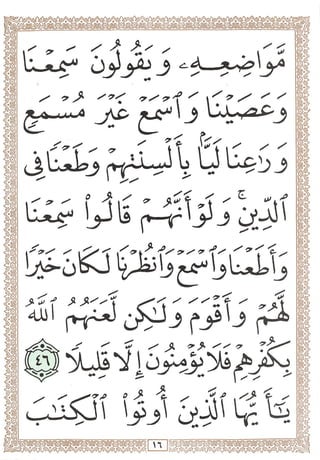 مَّوَاضِعِهِۦ وَيَقُولُونَ سَمِعْنَا
وَعَصَيْنَا وَٱسْمَعْ غَيْرَ مُسْمَعٍ
وَرَٰعِنَا لَيًّۢا بِأَلْسِنَتِهِمْ وَطَعْنًا فِى
ٱلدِّينِ ۚ وَلَوْ أَنَّهُمْ قَالُوا۟ سَمِعْنَا
وَأَطَعْنَا وَٱسْمَعْ وَٱنظُرْنَا لَكَانَ خَيْرًا
لَّهُمْ وَأَقْوَمَ وَلَـٰكِن لَّعَنَهُمُ ٱللَّهُ
بِكُفْرِهِمْ فَلَا يُؤْمِنُونَ إِلَّا قَلِيلًا ٤٦
يَـٰٓأَيُّهَا ٱلَّذِينَ أُوتُوا۟ ٱلْكِتَـٰبَ
١٦